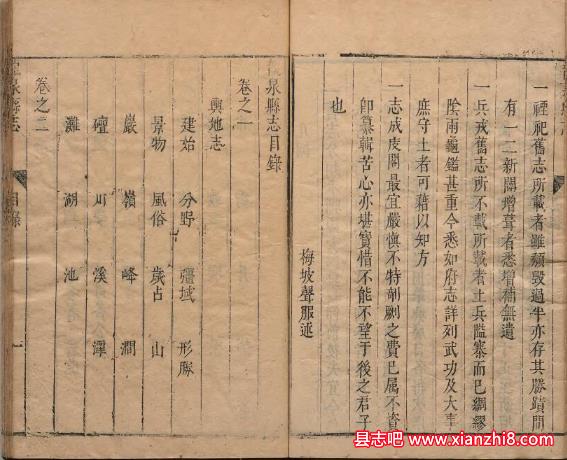 一禋祀舊志所載者雖頹毀過半亦存其勝蹟間
有一二新闢增葺者悉增補無遺
一兵戎舊志所不載所載者土兵隘寨而已綢繆
陰雨龜鑑甚重今悉如府志詳列武功及大事
庶守土者可藉以知方
一志成皮閣最宜嚴慎不特剞劂之費已屬不貲
即纂輯苦心亦堪寶惜不能不望于後之君子
也
梅坡聲服述
泉縣志目錄
卷之一
輿地志
建始 分野 疆域 形勝
景物 風俗 歲占 山
巖 嶺 峰 澗
礶 川 溪 潭
灘 湖 池
卷之二
泉縣志
目錄
一
县志吧 www.xianzhi8.com